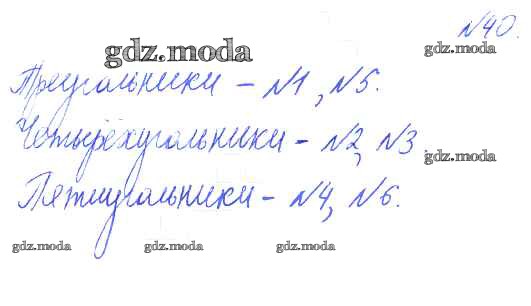 №40.
gdz.moda gdz.moda
Треугольники - №1, №5.
Четырёхугольники - №2, №3.
gdz.moda
Пятиугольники - №4, №6.
gdz.moda gdz.moda gdz.moda